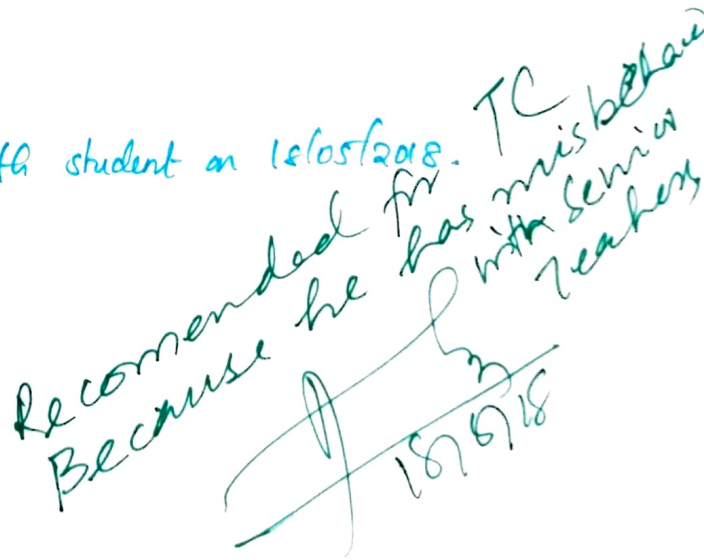 student on 18/05/2018.
Recomended for TC
Because he has misbehaved
with Senior
Teachers
18/5/18